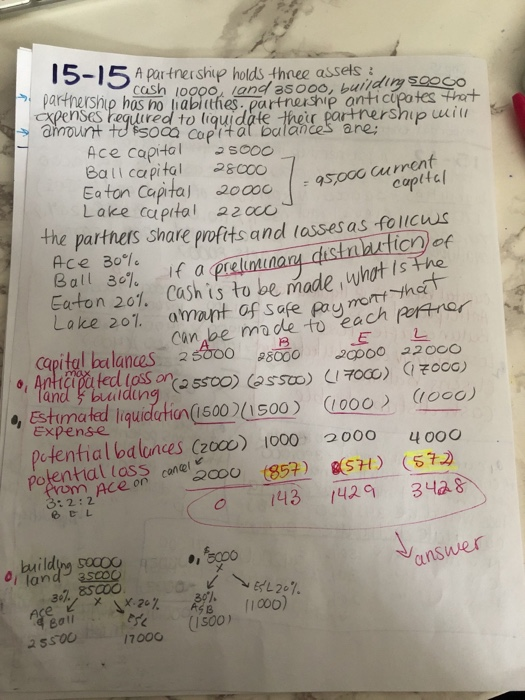 15-15 A partnership holds three assets:
cash 10000, land 35000, building 50000
partnership has no liabilities. partnership anticipates that
expenses required to liquidate their partnership will
amount to $5000 capital balances are:
Ace capital 25000
Ball capital 28000
Eaton Capital 20000
Lake capital 22000
= 95,000 current
capital
the partners share profits and losses as follows
Ace 30%
Ball 30%
Eaton 20%
Lake 20%
If a preliminary distribution of
cash is to be made, what is the
amount of safe payment that
can be made to each partner
A B E L
capital balances 25000 28000 20000 22000
max
Anticipated loss on (25500) (25500) (17000) (17000)
land & building
Estimated liquidation (1500) (1500) (1000) (1000)
Expense
potential balances (2000) 1000 2000 4000
potential loss cancel 2000 (857) (571) (572)
from Ace on
3:2:2
B E L
0 143 1429 3428
answer
building 50000
land 35000
85000
30% x x 20%
Ace
& Ball E&L
25500 17000
$5000
x
30% E&L 20%
A&B (1000)
(1500)